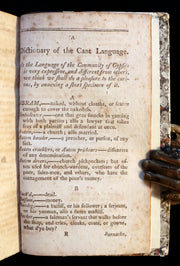 A
Dictionary of the Cant Language.
As the Language of the Community of Gypsies
is very expressive, and different from others,
we think we shall do a pleasure to the curious,
by annexing a short specimen of it.
A
ABRAM,—naked, without cloaths, or scarce
enough to cover the nakedness.
one that goes snacks in gaming
with both parties; also a
of a plaintiff and defendant at once.
—a church; also married.
preacher, or parson, of any
sect.
Autem
of any denomination.
Autem divers,—church pickpockets; but often
used for church-wardens, overseers of the
poor, sides-men, and others, who have the
management of the poor's money.
B
money.
a bailiff, or his follower; a serjeant,
or his yeoman, also a fierce mastiff.
salesman's servant that walks before
the shop, and cries, cloaks, coats, or gowns,
what d'ye buy?
R
Barnacles,